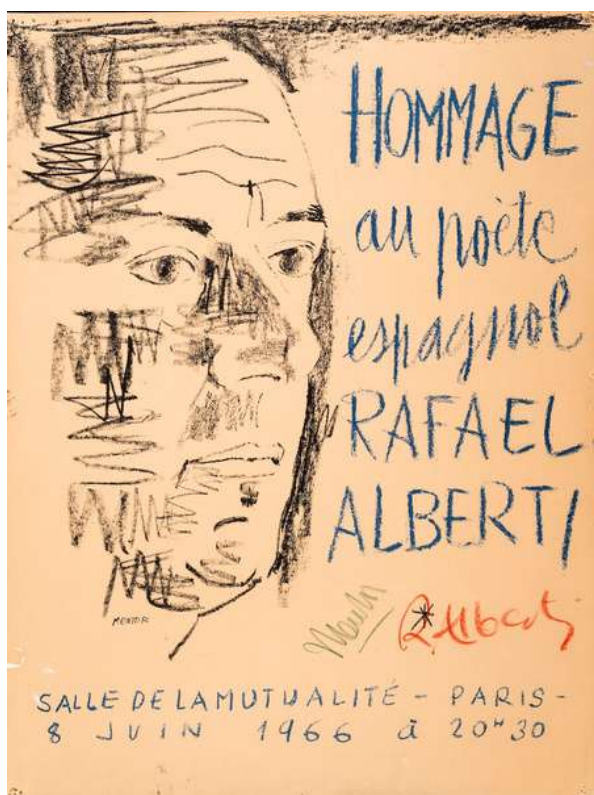 HOMMAGE
au poète
espagnol
RAFAEL
ALBERTI
MENTOR
Mentor
R. Alberti
SALLE DE LA MUTUALITÉ - PARIS -
8 JUIN 1966 à 20H30